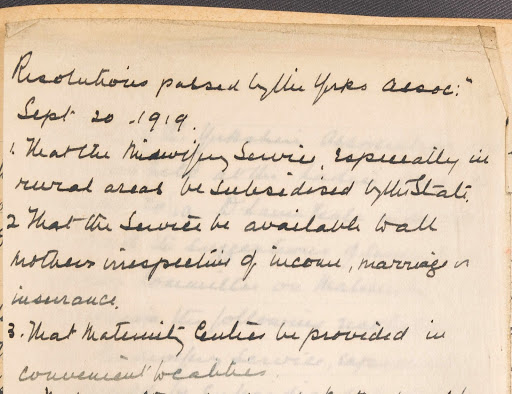 Resolutions passed by the Yorks Assoc:n
Sept 20 - 1919.
1. That the Midwifery Service, especially in
rural areas be subsidised by the State.
2 That the Service be available to all
mothers irrespective of income, marriage or
insurance.
3. That Maternity Centres be provided in
convenient localities.